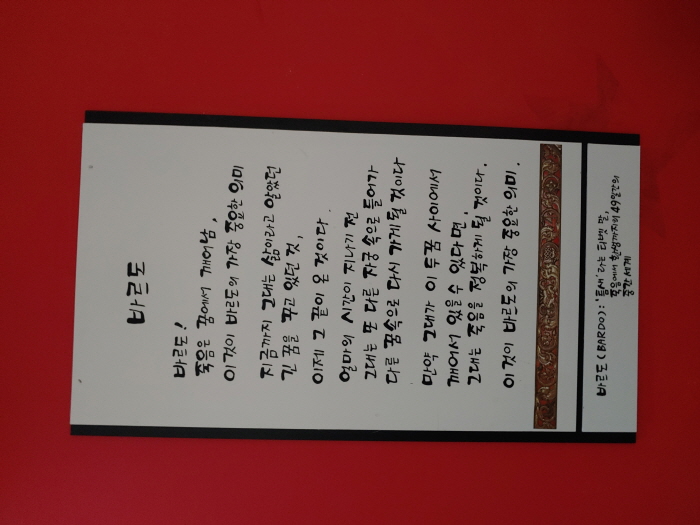 바르도
바르도 ;
죽음은 꿈에서 깨어남,
이것이 바르도의 가장 중요한 의미!
지금까지 그대는 삶이라고 알았던
긴 꿈을 꾸고 있었던 것,
이제 그 꿈이 끝난 것이다.
얼마의 시간이 지나가면
그대는 또 다른 자궁속으로 들어가
다른 꿈속으로 다시 가게 될 것이다
만약 그대가 이 두 꿈 사이에서
깨어서 있을 수 있다면,
그대는 죽음을 정복하게 될 것이다.
이것이 바르도의 가장 중요한 의미!
바르도 (BARDO) : 티벳 말로,
죽음에서 환생까지의 49일간의